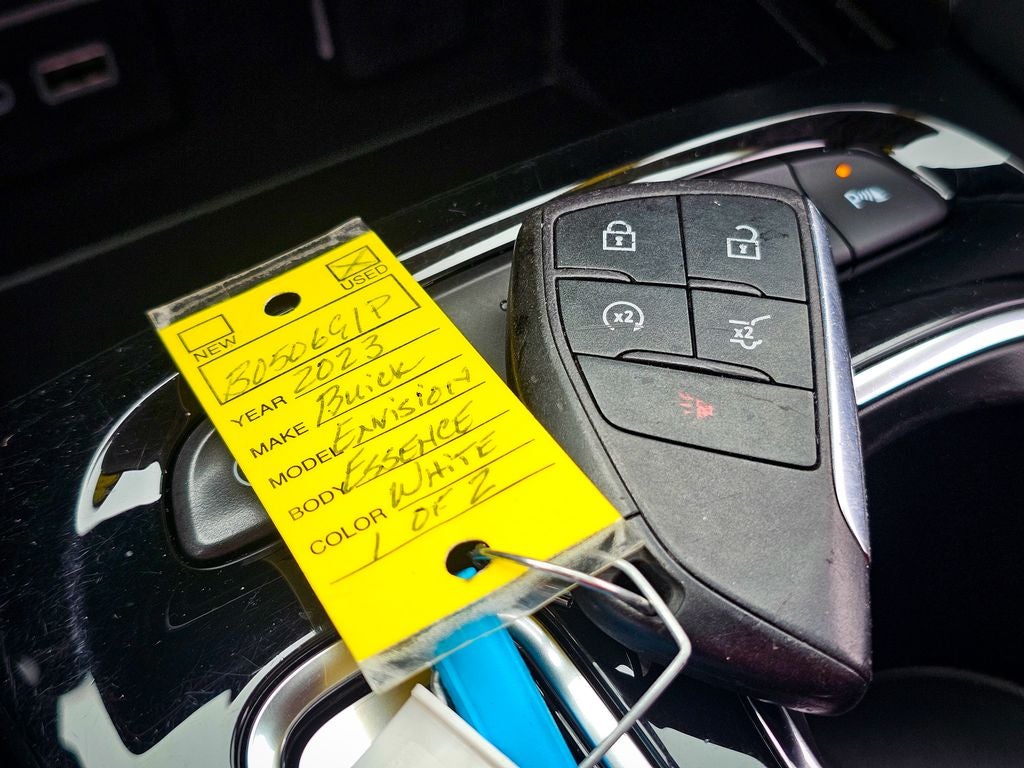 NEW USED
B05069/P
YEAR 2023
MAKE Buick
MODEL ENVISION
BODY ESSENCE
COLOR WHITE
1 OF 2
x2
x2
P